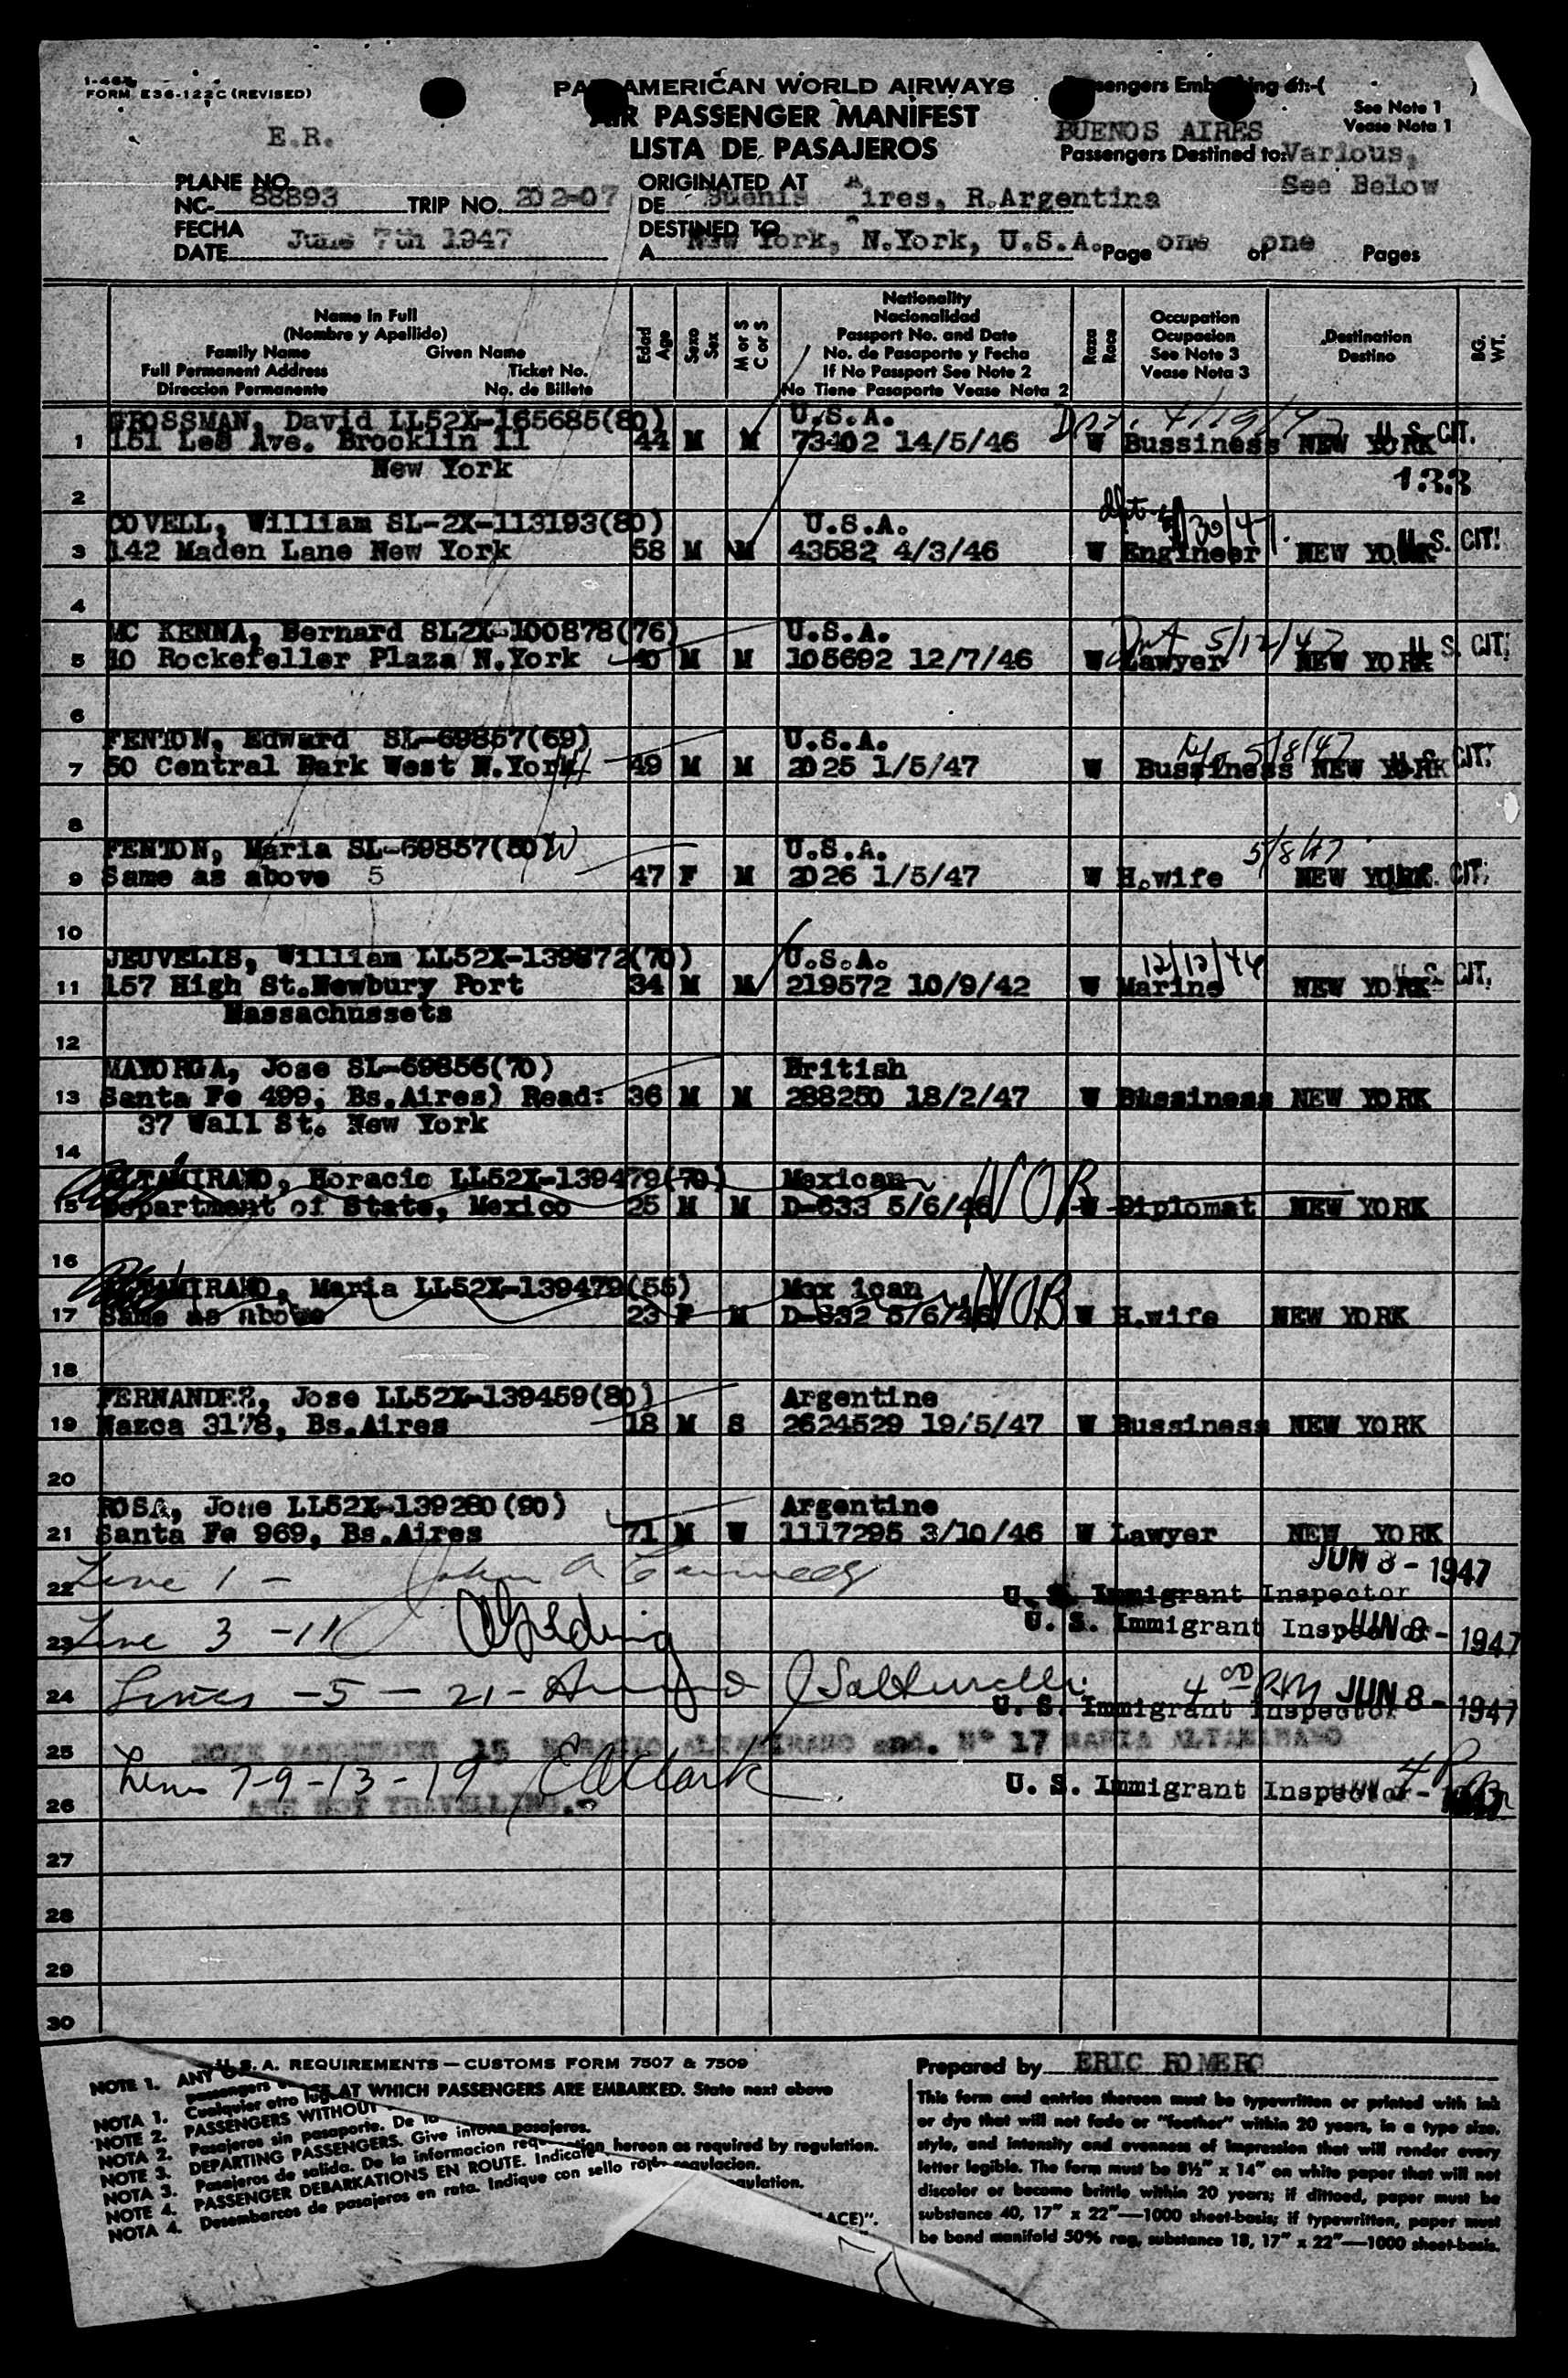 FORM E36-122C (REVISED)
PAN AMERICAN WORLD AIRWAYS
AIR PASSENGER MANIFEST
LISTA DE PASAJEROS
Passengers Embarking at:-( )
See Note 1
Vease Nota 1
E.R.
BUENOS AIRES
Passengers Destined to: Various,
See Below
PLANE NO.
NC- 88893 TRIP NO. 202-07
ORIGINATED AT
DE Buenis Aires, R.Argentina
FECHA
DATE June 7th 1947
DESTINED TO
A New York, N.York, U.S.A. Page one of one Pages
Name in Full
(Nombre y Apellido)
Family Name Given Name
Full Permanent Address Ticket No.
Direccion Permanente No. de Billete
Edad
Age
Sexo
Sex
M or S
C or S
Nationality
Nacionalidad
Passport No. and Date
No. de Pasaporte y Fecha
If No Passport See Note 2
No Tiene Pasaporte Vease Nota 2
Raza
Race
Occupation
Ocupacion
See Note 3
Vease Nota 3
Destination
Destino
BG.
WT.
GROSSMAN, David LL52X-165685(80) U.S.A. 4/19/47
1 151 Lee Ave. Brooklin 11 44 M M 73402 14/5/46 W Bussiness NEW YORK U.S. CIT.
New York 133
2
COVELL, William SL-2X-113193(80) U.S.A. 4/30/47
3 142 Maden Lane New York 58 M M 43582 4/3/46 W Engineer NEW YORK U.S. CIT.
4
MC KENNA, Bernard SL2X-100878(76) U.S.A. 5/12/47
5 10 Rockefeller Plaza N.York 40 M M 105692 12/7/46 W Lawyer NEW YORK U.S. CIT.
6
FENTON, Edward SL-69857(69) U.S.A. 5/8/47
7 50 Central Park West N.York H 49 M M 2025 1/5/47 W Bussiness NEW YORK U.S. CIT.
8
FENTON, Maria SL-69857(50) W U.S.A. 5/8/47
9 Same as above 5 47 F M 2026 1/5/47 W H.wife NEW YORK U.S. CIT.
10
JEUVELIS, William LL52X-139872(70) U.S.A. 12/12/46
11 157 High St.Newbury Port 34 M M 219572 10/9/42 W Marine NEW YORK U.S. CIT.
Massachussets
12
MAYORGA, Jose SL-69856(70) British
13 Santa Fe 499; Bs.Aires) Read: 36 M M 288250 18/2/47 W Bussiness NEW YORK
37 Wall St. New York
14
ALTAMIRANO, Horacio LL52X-139479(70) Mexican NOB
15 Department of State, Mexico 25 M M D-633 5/6/46 W Diplomat NEW YORK
16
ALTAMIRANO, Maria LL52X-139479(55) Mexican NOB
17 Same as above 23 F M D-632 5/6/46 W H.wife NEW YORK
18
FERNANDEZ, Jose LL52X-139459(80) Argentine
19 Nazca 3178, Bs.Aires 18 M S 2624529 19/5/47 W Bussiness NEW YORK
20
ROSA, Jose LL52X-139280(90) Argentine
21 Santa Fe 969, Bs.Aires 71 M W 1117295 3/10/46 W Lawyer NEW YORK
JUN 8 - 1947
22 Line 1 - John A U. S. Immigrant Inspector
23 Line 3 - 11 U. S. Immigrant Inspector JUN 8 - 1947
24 Lines - 5 - 21 - 4 00 PM JUN 8 - 1947
U. S. Immigrant Inspector
25 NOTE PASSENGER 15 HORACIO ALTAMIRANO and. Nº 17 MARIA ALTAMIRANO
Lines 7-9-13-19 Clark U. S. Immigrant Inspector
26 ARE NOT TRAVELLING.-
27
28
29
30
U. S. A. REQUIREMENTS — CUSTOMS FORM 7507 & 7509
NOTE 1. ANY
passengers AT WHICH PASSENGERS ARE EMBARKED. State next above
NOTA 1. Cualquier otro
NOTE 2. PASSENGERS WITHOUT
NOTA 2. Pasajeros sin pasaporte. De la pasajeros.
NOTE 3. DEPARTING PASSENGERS. Give hereon as required by regulation.
NOTA 3. Pasajeros de salida. De la informacion regulacion.
NOTE 4. PASSENGER DEBARKATIONS EN ROUTE. Indicate regulation.
NOTA 4. Desembarcos de pasajeros en rota. Indique con sello
Prepared by ERIC ROMERO
This form and entries thereon must be typewritten or printed with ink
or dye that will not fade or "feather" within 20 years, in a type size,
style, and intensity and evenness of impression that will render every
letter legible. The form must be 8½" x 14" on white paper that will not
discolor or become brittle within 20 years; if dittoed, paper must be
substance 40, 17" x 22"—1000 sheet-basis; if typewritten, paper must
be bond manifold 50% rag, substance 18, 17" x 22"—1000 sheet-basis.